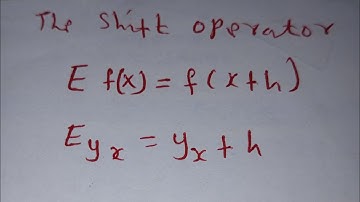 The shift operator
E f(x) = f(x+h)
E y_x = y_x + h